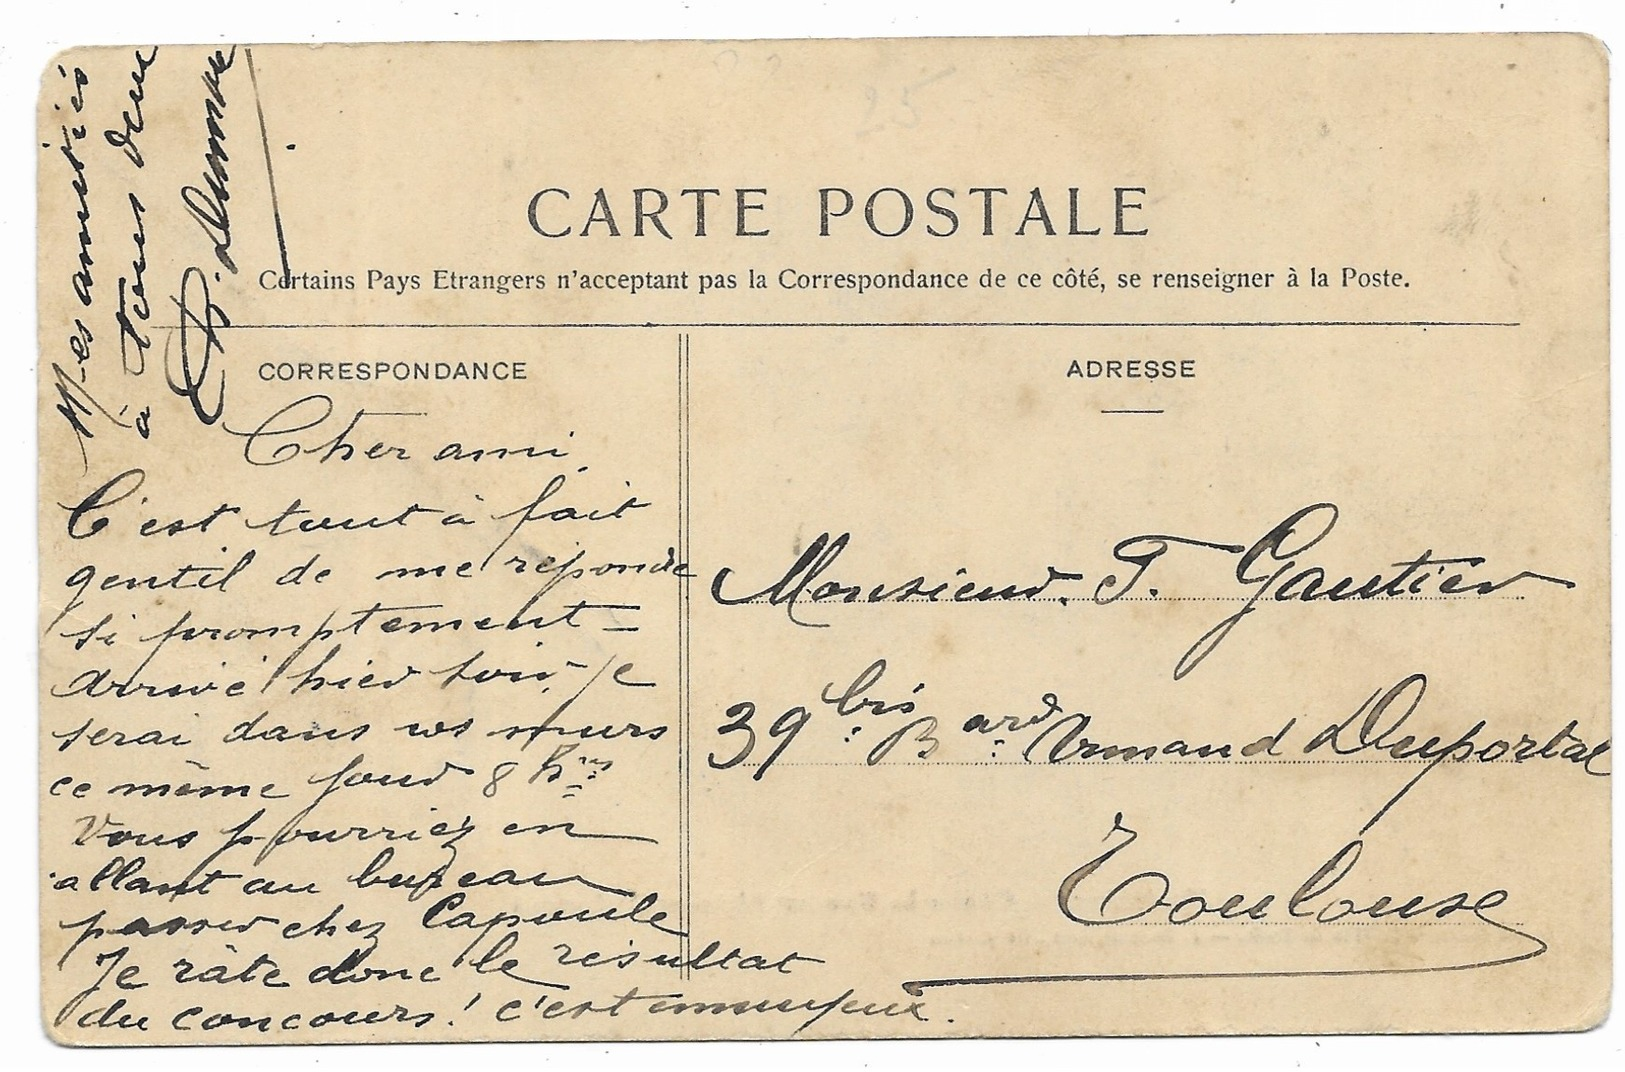 CARTE POSTALE
Certains Pays Etrangers n'acceptant pas la Correspondance de ce côté, se renseigner à la Poste.
CORRESPONDANCE
Cher ami
C'est tout à fait
gentil de me répondre
si promptement =
arrivé hier soir. Je
serai dans vos murs
ce même jour 8 hrs
Vous pourriez en
allant au bureau
passer chez Capoule
Je râte donc le résultat
du concours! c'est ennuyeux.
Mes amitiés
à tous deux
ADRESSE
Monsieur. T. Gautier
39 bis Bard Armand Duportal
Toulouse
25